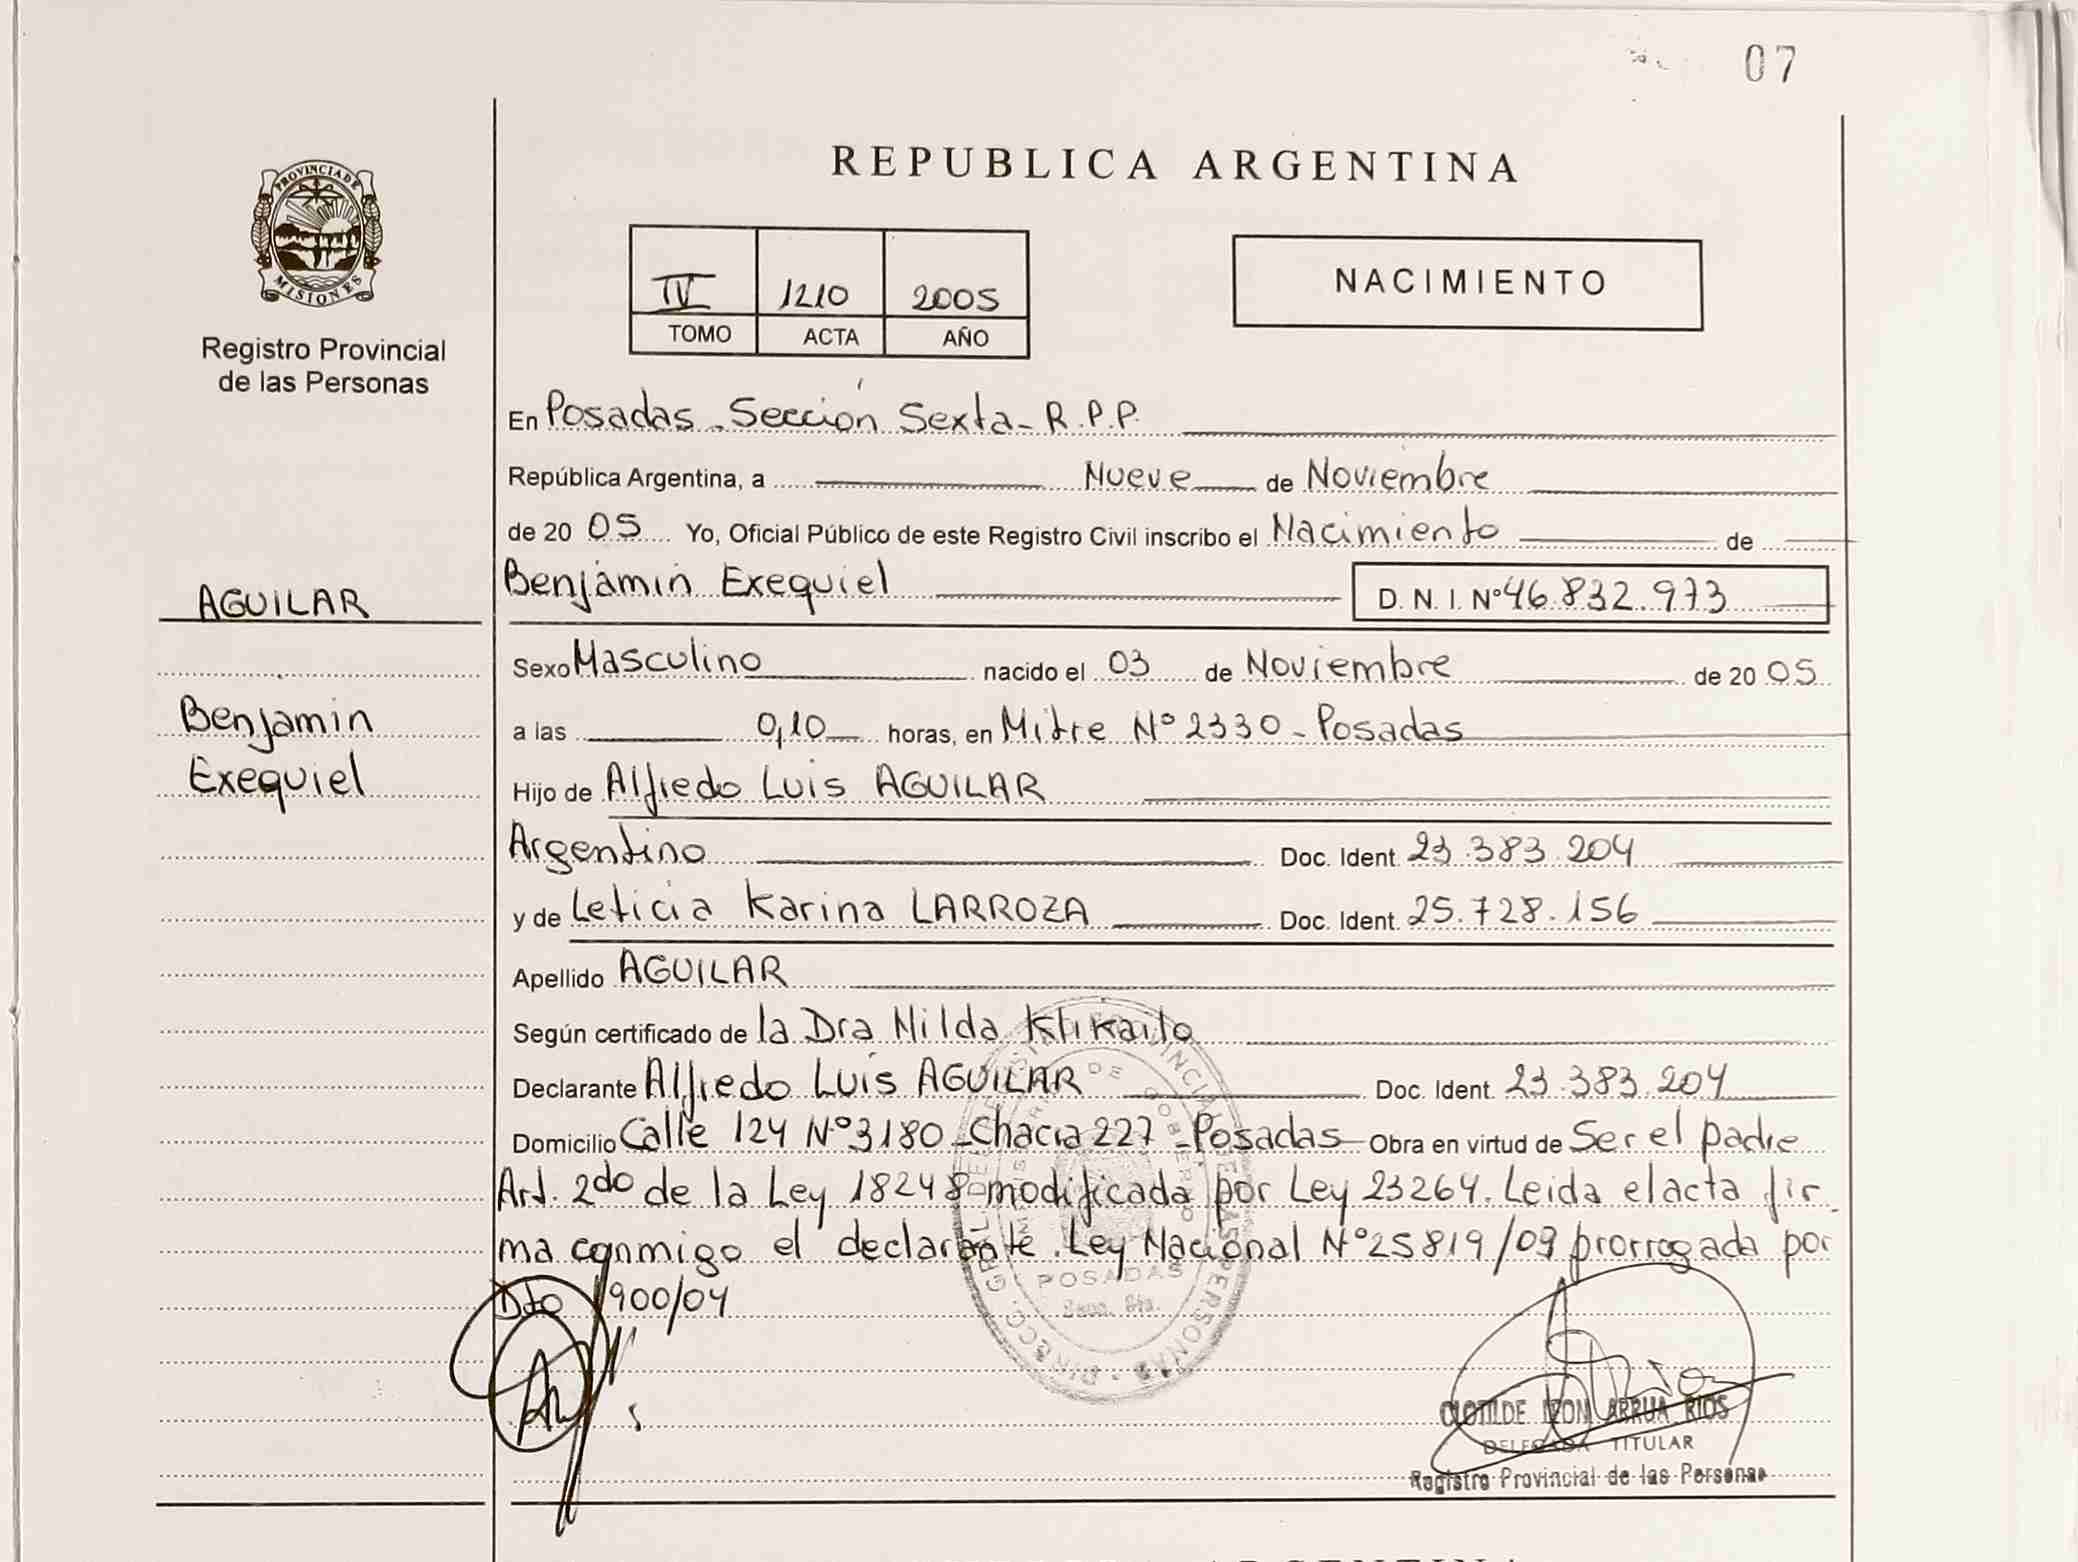 07
REPUBLICA ARGENTINA
PROVINCIA DE
MISIONES
Registro Provincial
de las Personas
IV 1210 2005
TOMO ACTA AÑO
NACIMIENTO
En Posadas. Sección Sexta - R.P.P.
República Argentina, a Nueve de Noviembre
de 20 05 Yo, Oficial Público de este Registro Civil inscribo el Nacimiento de
Benjamin Exequiel D. N. I. Nº 46.832.973
AGUILAR
Sexo Masculino nacido el 03 de Noviembre de 20 05
Benjamin
a las 0,10 horas, en Mitre Nº 2330 - Posadas
Exequiel
Hijo de Alfredo Luis AGUILAR
Argentino Doc. Ident 23.383.204
y de Leticia Karina LARROZA Doc. Ident. 25.728.156
Apellido AGUILAR
Según certificado de la Dra Nilda Klikailo
Declarante Alfredo Luis AGUILAR Doc. Ident. 23.383.204
Domicilio Calle 124 Nº 3180 - Chacra 227 - Posadas - Obra en virtud de Ser el padre
Art. 2do de la Ley 18248 modificada por Ley 23264. Leida el acta fir
ma conmigo el declarante. Ley Nacional Nº 25819/09 prorrogada por
Dto 1900/04
POSADAS
CLOTILDE LEON ARRUA RIOS
DELEGADA TITULAR
Registro Provincial de las Personas